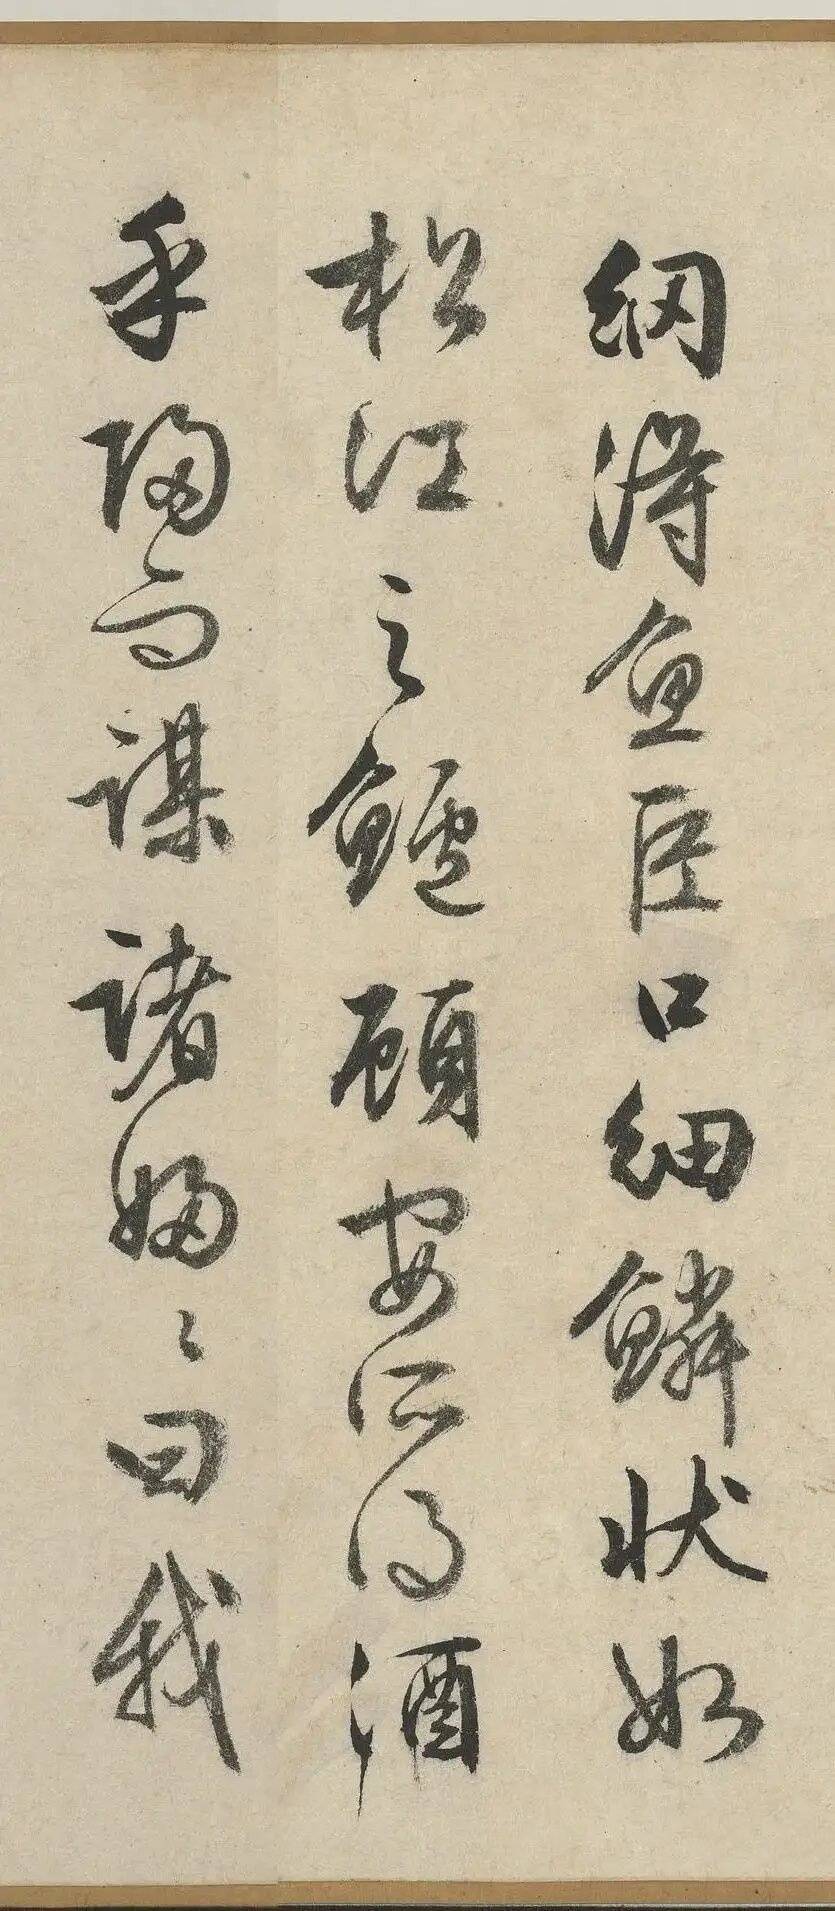 網得魚巨口細鱗狀如
松江之鱸顧安所得酒
乎歸而謀諸婦〻曰我